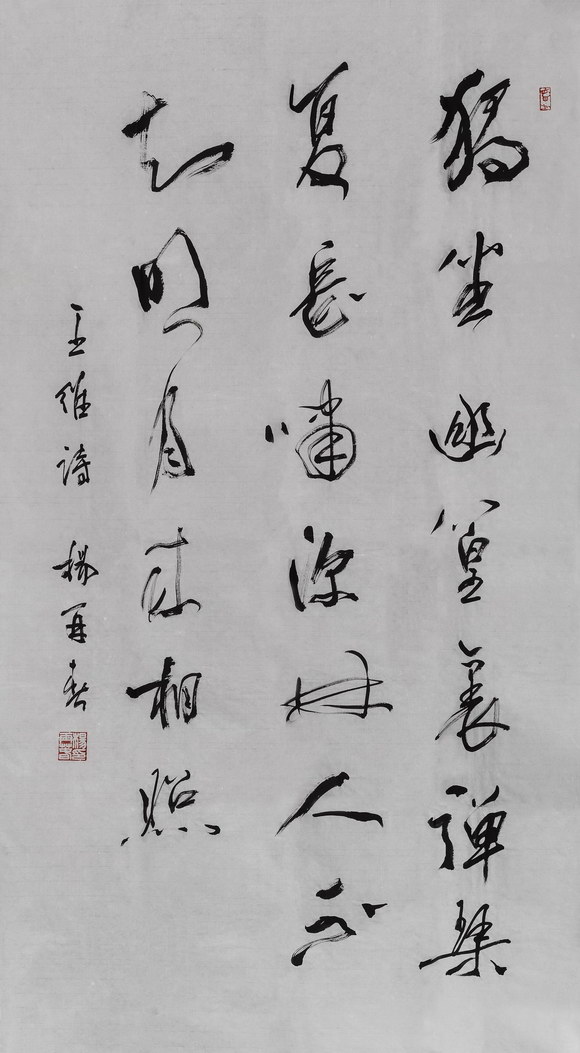 獨坐幽篁裏彈琴
复長嘯深林人不
知明月来相照
王維詩 楊再春